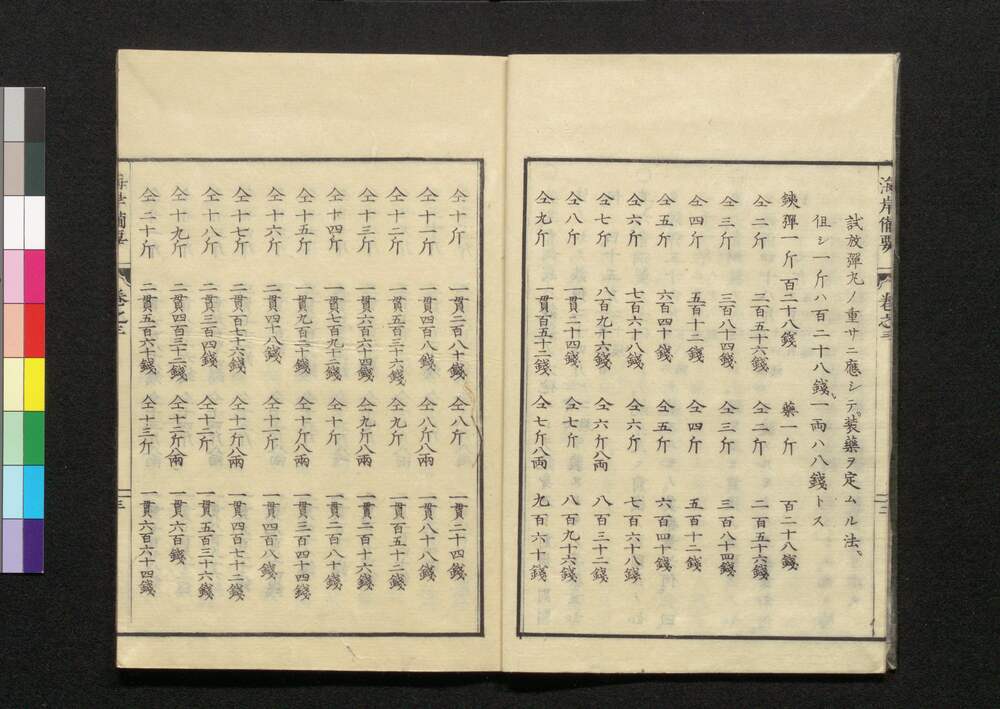 海岸備要 卷之三
試放彈丸ノ重サニ應シテ裝藥ヲ定ムル法、
伹シ一斤ハ百二十八錢、一両ハ八錢トス
鉄彈一斤 百二十八錢 藥一斤 百二十八錢
仝二斤 二百五十六錢 仝二斤 二百五十六錢
仝三斤 三百八十四錢 仝三斤 三百八十四錢
仝四斤 五百十二錢 仝四斤 五百十二錢
仝五斤 六百四十錢 仝五斤 六百四十錢
仝六斤 七百六十八錢 仝六斤 七百六十八錢
仝七斤 八百九十六錢 仝六斤八両 八百三十二錢
仝八斤 一貫二十四錢 仝七斤 八百九十六錢
仝九斤 一貫百五十二錢 仝七斤八両 九百六十錢
仝十斤 一貫二百八十錢 仝八斤 一貫二十四錢
仝十一斤 一貫四百八錢 仝八斤八両 一貫八十八錢
仝十二斤 一貫五百三十六錢 仝九斤 一貫百五十二錢
仝十三斤 一貫六百六十四錢 仝九斤八両 一貫二百十六錢
仝十四斤 一貫七百九十二錢 仝十斤 一貫二百八十錢
仝十五斤 一貫九百二十錢 仝十斤八両 一貫三百四十四錢
仝十六斤 二貫四十八錢 仝十一斤 一貫四百八錢
仝十七斤 二貫百七十六錢 仝十一斤八両 一貫四百七十二錢
仝十八斤 二貫三百四錢 仝十二斤 一貫五百三十六錢
仝十九斤 二貫四百三十二錢 仝十二斤八両 一貫六百錢
仝二十斤 二貫五百六十錢 仝十三斤 一貫六百六十四錢